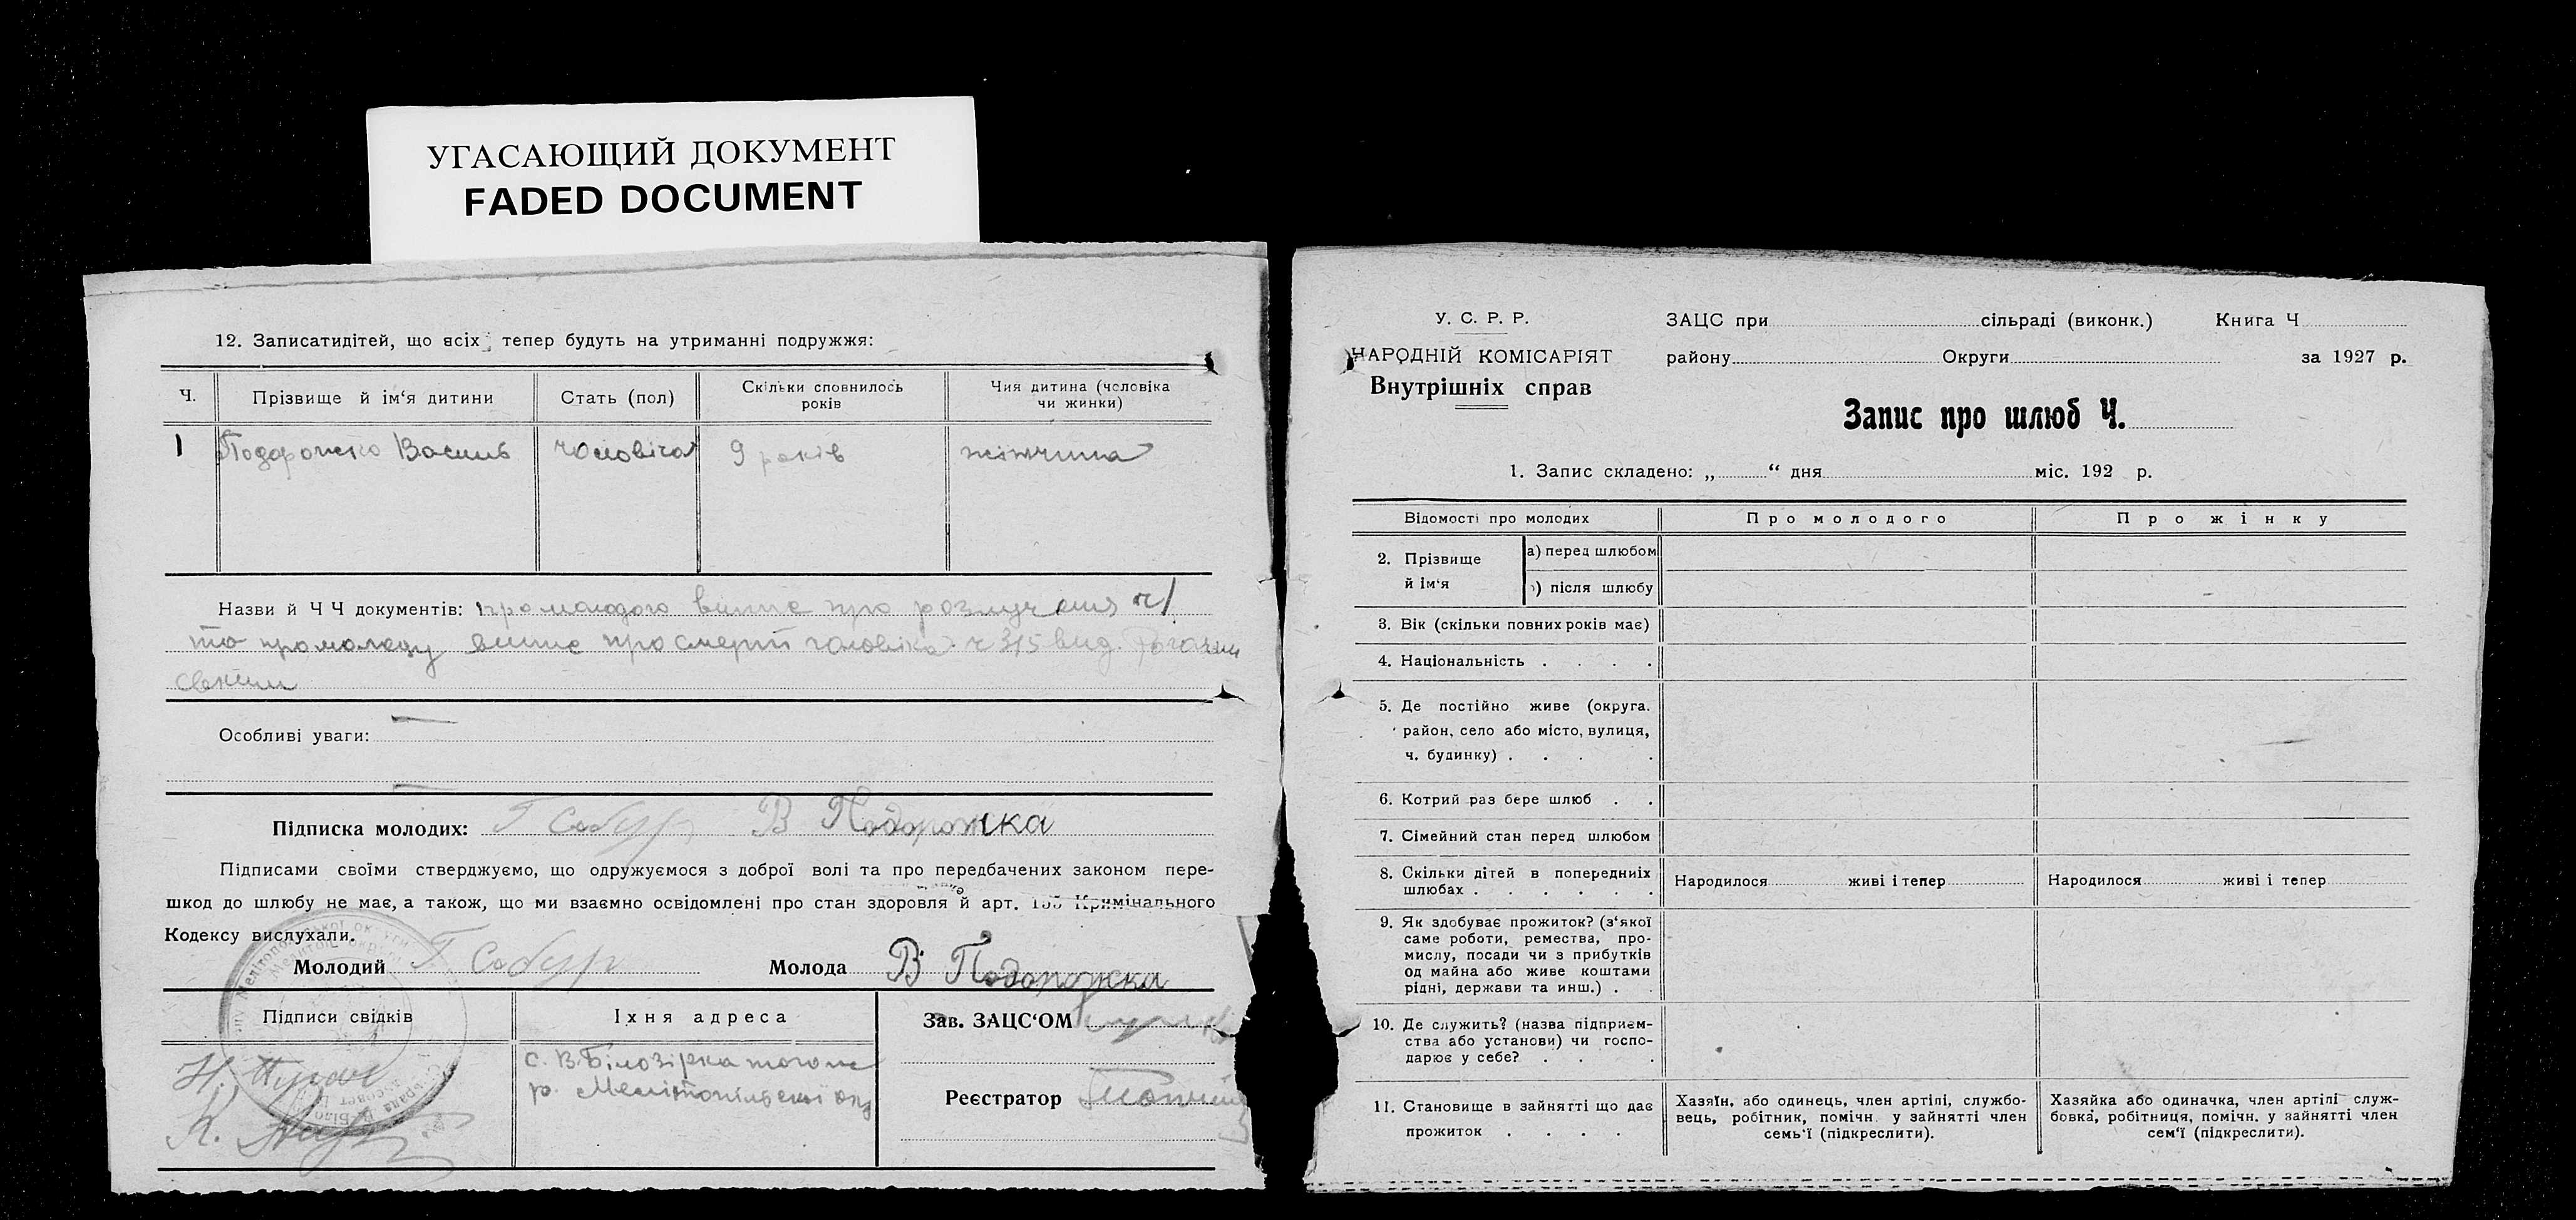 УГАСАЮЩИЙ ДОКУМЕНТ
FADED DOCUMENT
12. Записатидітей, що всіх тепер будуть на утриманні подружжя:
Ч.
Прізвище й ім‘я дитини
Стать (пол)
Скільки сповнилось
років
Чия дитина (чоловіка
чи жинки)
1
Подорожко Василь
чоловіча
9 років
жінчина
Назви й Ч Ч документів: про молодого випис про розлучення ч 1
та про молоду випис про смерть чоловіка ч 315 вид.
ським
Особливі уваги:
Підписка молодих: Г Собур В Подорожка
Підписами своїми стверджуємо, що одружуємося з доброї волі та про передбачених законом пере-
шкод до шлюбу не має, а також, що ми взаємно освідомлені про стан здоровля й арт. 155 Кримінального
Кодексу вислухали.
Молодий Г Собур Молода В Подорожка
Підписи свідків
Їхня адреса
с. В. Білозірка того ж
р. Мелітопільської окр
Зав. ЗАЦС‘ОМ
Реєстратор
У. С. Р. Р.
НАРОДНІЙ КОМІСАРІЯТ
Внутрішніх справ
ЗАЦС при сільраді (виконк.) Книга Ч
району Округи за 1927 р.
Запис про шлюб Ч.
1. Запис складено: „ “ дня міс. 192 р.
Відомості про молодих
Про молодого
Про жінку
2. Прізвище
й ім‘я
а) перед шлюбом
) після шлюбу
3. Вік (скільки повних років має)
4. Національність . . . .
5. Де постійно живе (округа.
район, село або місто, вулиця,
ч. будинку) . . . .
6. Котрий раз бере шлюб . .
7. Сімейний стан перед шлюбом
8. Скільки дітей в попередниіх
шлюбах . . . . . .
Народилося живі і тепер
Народилося живі і тепер
9. Як здобуває прожиток? (з‘якої
саме роботи, ремества, про-
мислу, посади чи з прибутків
од майна або живе коштами
рідні, держави та инш.) . .
10. Де служить? (назва підприєм-
ства або установи) чи госпо-
дарює у себе? . . .
11. Становище в зайнятті що дає
прожиток . . . .
Хазяїн, або одинець, член артілі, службо-
вець, робітник, помічн. у зайнятті член
семь‘ї (підкреслити).
Хазяйка або одиначка, член артілі служ-
бовка, робітниця, помічн. у зайнятті член
сем‘ї (підкреслити).